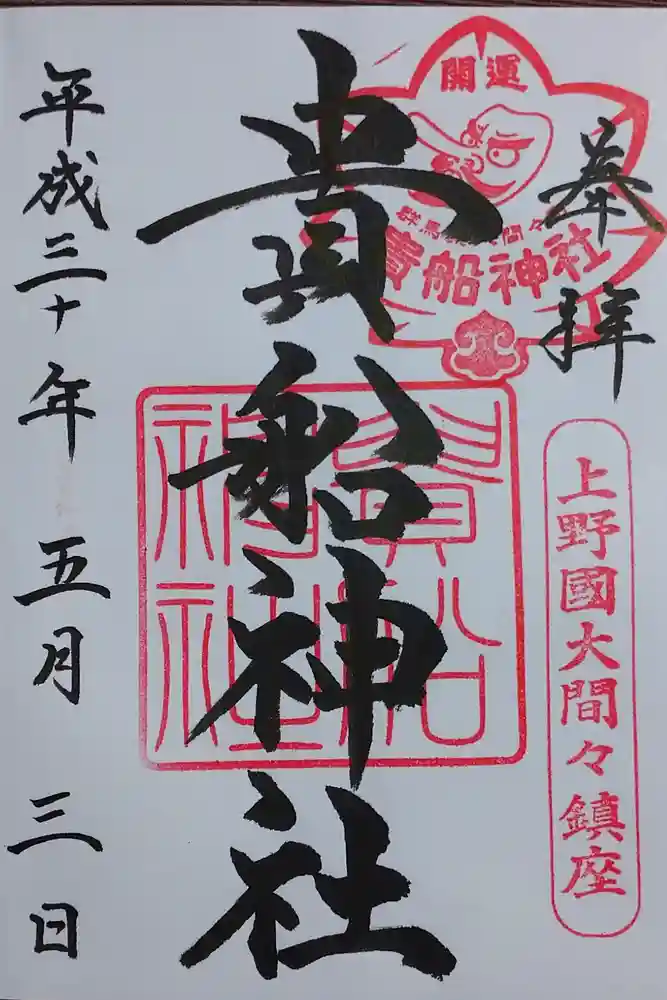 奉拝
開運
群馬 大間々
貴船神社
上野國大間々鎮座
貴船神社
貴船神社
平成三十年五月三日